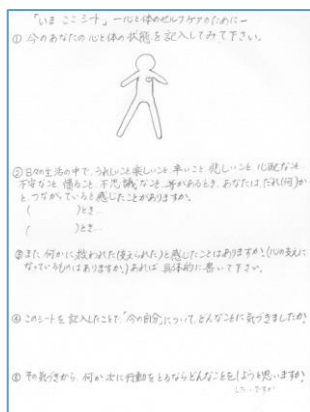 「いま ここ シート」 ー心と体のセルフケアのためにー
① 今のあなたの心と体の状態を記入してみて下さい。
② 日々の生活の中で、うれしいこと楽しいこと、辛いこと、悲しいこと、心配なこと、
不安なこと、憤ること、不思議なこと、等があるとき、あなたは、だれ(何)か
と、つながっていると感じたことがありますか。
( )とき…
( )とき…
③ また、何かに救われた(支えられた)と感じたことはありますか?(心の支えに
なっているものはありますか。)あれば、具体的に書いて下さい。
④ このシートを記入したことで、「今の自分」について、どんなことに気づきましたか?
⑤ その気づきから、何か次に行動をとるならどんなことをしようと思いますか?
したいですか